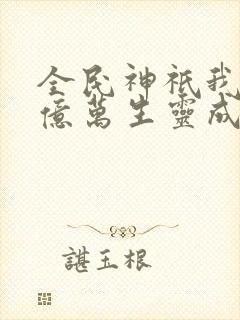 全民神祇我
億萬生靈成
諶玉根